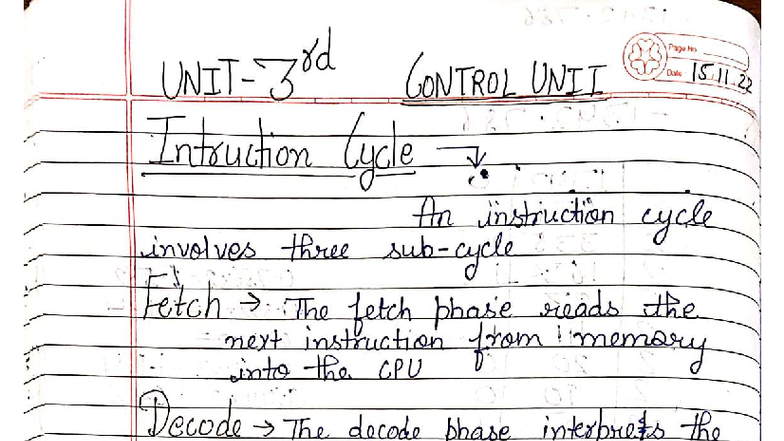 Page No
Date 15.11.22
UNIT-3rd CONTROL UNIT
Intruction Cycle →
An instruction cycle
involves three sub-cycle
Fetch → The fetch phase reads the
next instruction from memory
into the CPU
Decode → The decode phase interprets the